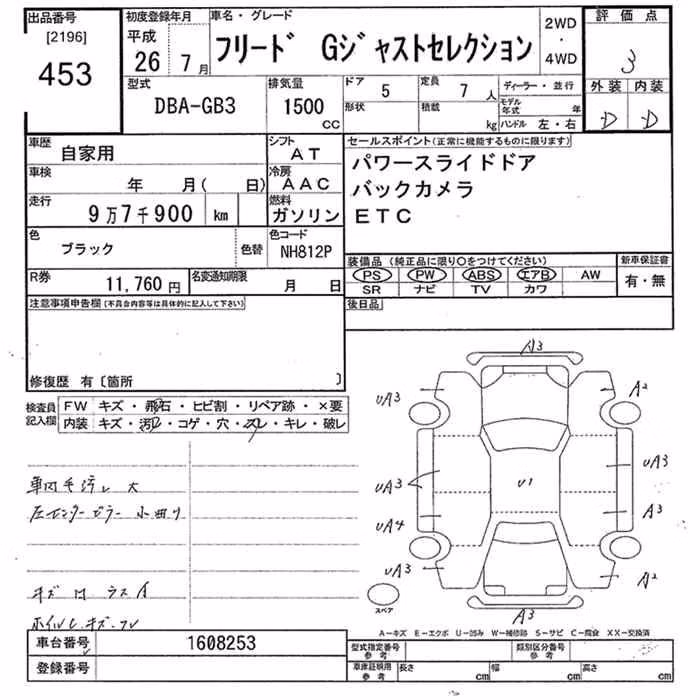 出品番号
[2196]
453
初度登録年月
平成
26 7月
車名・グレード
フリード Gジャストセレクション
2WD
・
4WD
評価点
3
外装 内装
D D
型式
DBA-GB3
排気量
1500
CC
ドア 5
形状
定員 7 人
積載 kg
ディーラー・並行
モデル年式 年
ハンドル 左・右
車歴
自家用
シフト
AT
車検
年 月( 日)
冷房
AAC
走行
9万7千900 km
燃料
ガソリン
色
ブラック
色替
色コード
NH812P
R券
11,760円
名変通知期限
月 日
セールスポイント(正常に機能するものに限ります)
パワースライドドア
バックカメラ
ETC
装備品(純正品に限り○をつけてください)
PS PW ABS エアB AW
SR ナビ TV カワ
新車保証書
有・無
後日品
注意事項申告欄(不具合内容等は具体的に記入して下さい)
修復歴 有〔箇所 〕
検査員記入欄
FW キズ・飛石・ヒビ割・リペア跡・×要
内装 キズ・汚レ・コゲ・穴・スレ・キレ・破レ
車内 汚レ 大
左センターピラー 小曲り
キズ
A3
UA3 A2
UA3 U1 UA3
UA4 A3
UA3 A2
A3
スペア
A-キズ E-エクボ U-凹み W-補修跡 S-サビ C-腐食 XX-交換済
車台番号 1608253
登録番号
型式指定番号参考
類別区分番号参考
車庫証明用参考 長さ cm 幅 cm 高さ cm